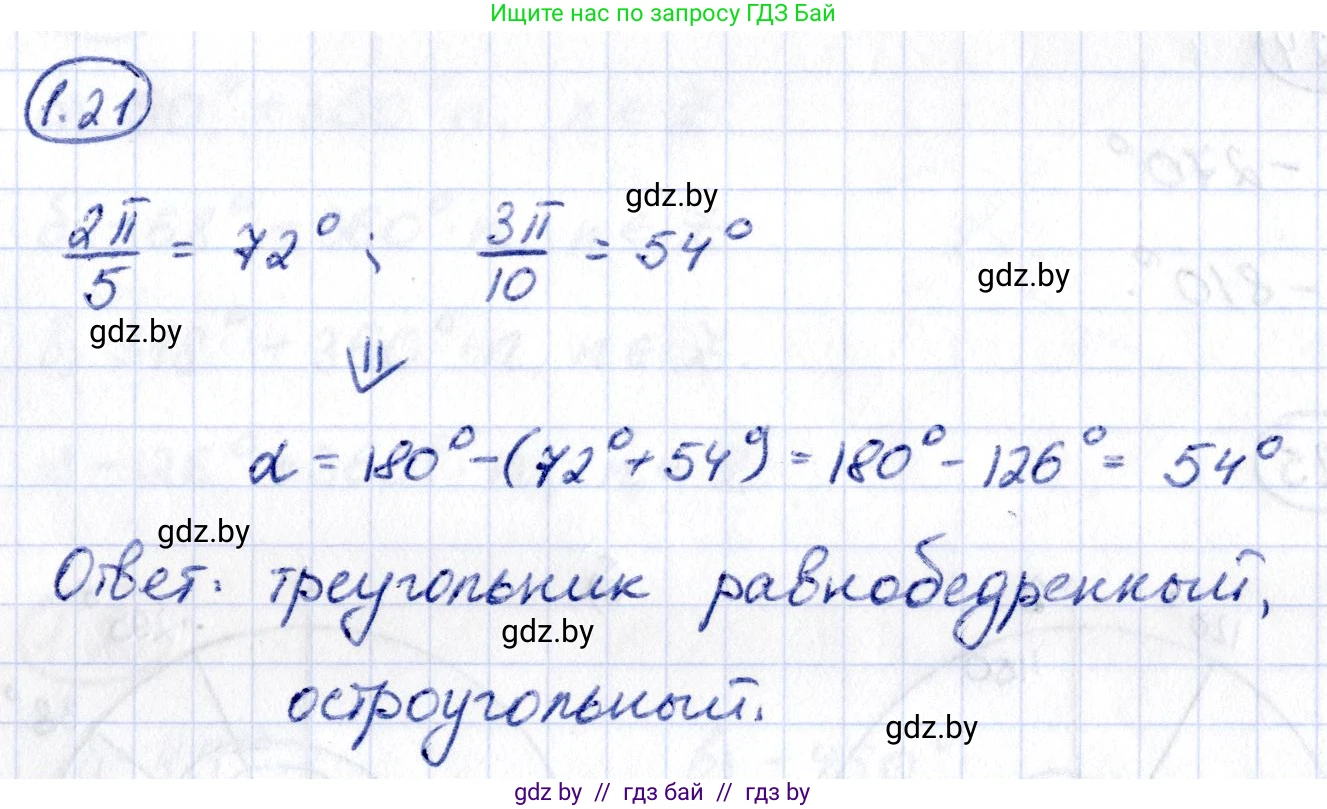 Ищите нас по запросу ГДЗ Бай
1.21
gdz.by
2π/5 = 72°; 3π/10 = 54°
gdz.by
gdz.by
⇓
α = 180° - (72° + 54°) = 180° - 126° = 54°
gdz.by
Ответ: треугольник равнобедренный,
gdz.by
остроугольный.
gdz.by
gdz by // гдз бай // гдз by